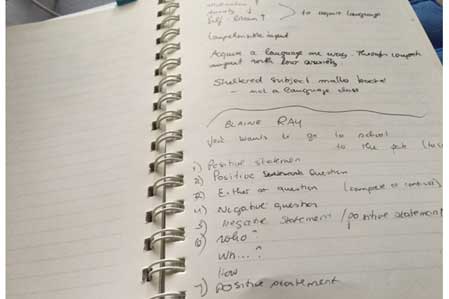 motivation ↑
anxiety ↓
Self-Esteem ↑ > to acquire language
Comprehensible input
Acquire a language one way. Through
input with low anxiety
Sheltered subject matter
- not a language class
BLAINE RAY
wants to go to school
to the pub
1) Positive statemen
2) Positive Question
3) Either or question (
4) Negative question
5) Negative statement / positive statement
6) Who?
Wh...?
How
7) positive statement